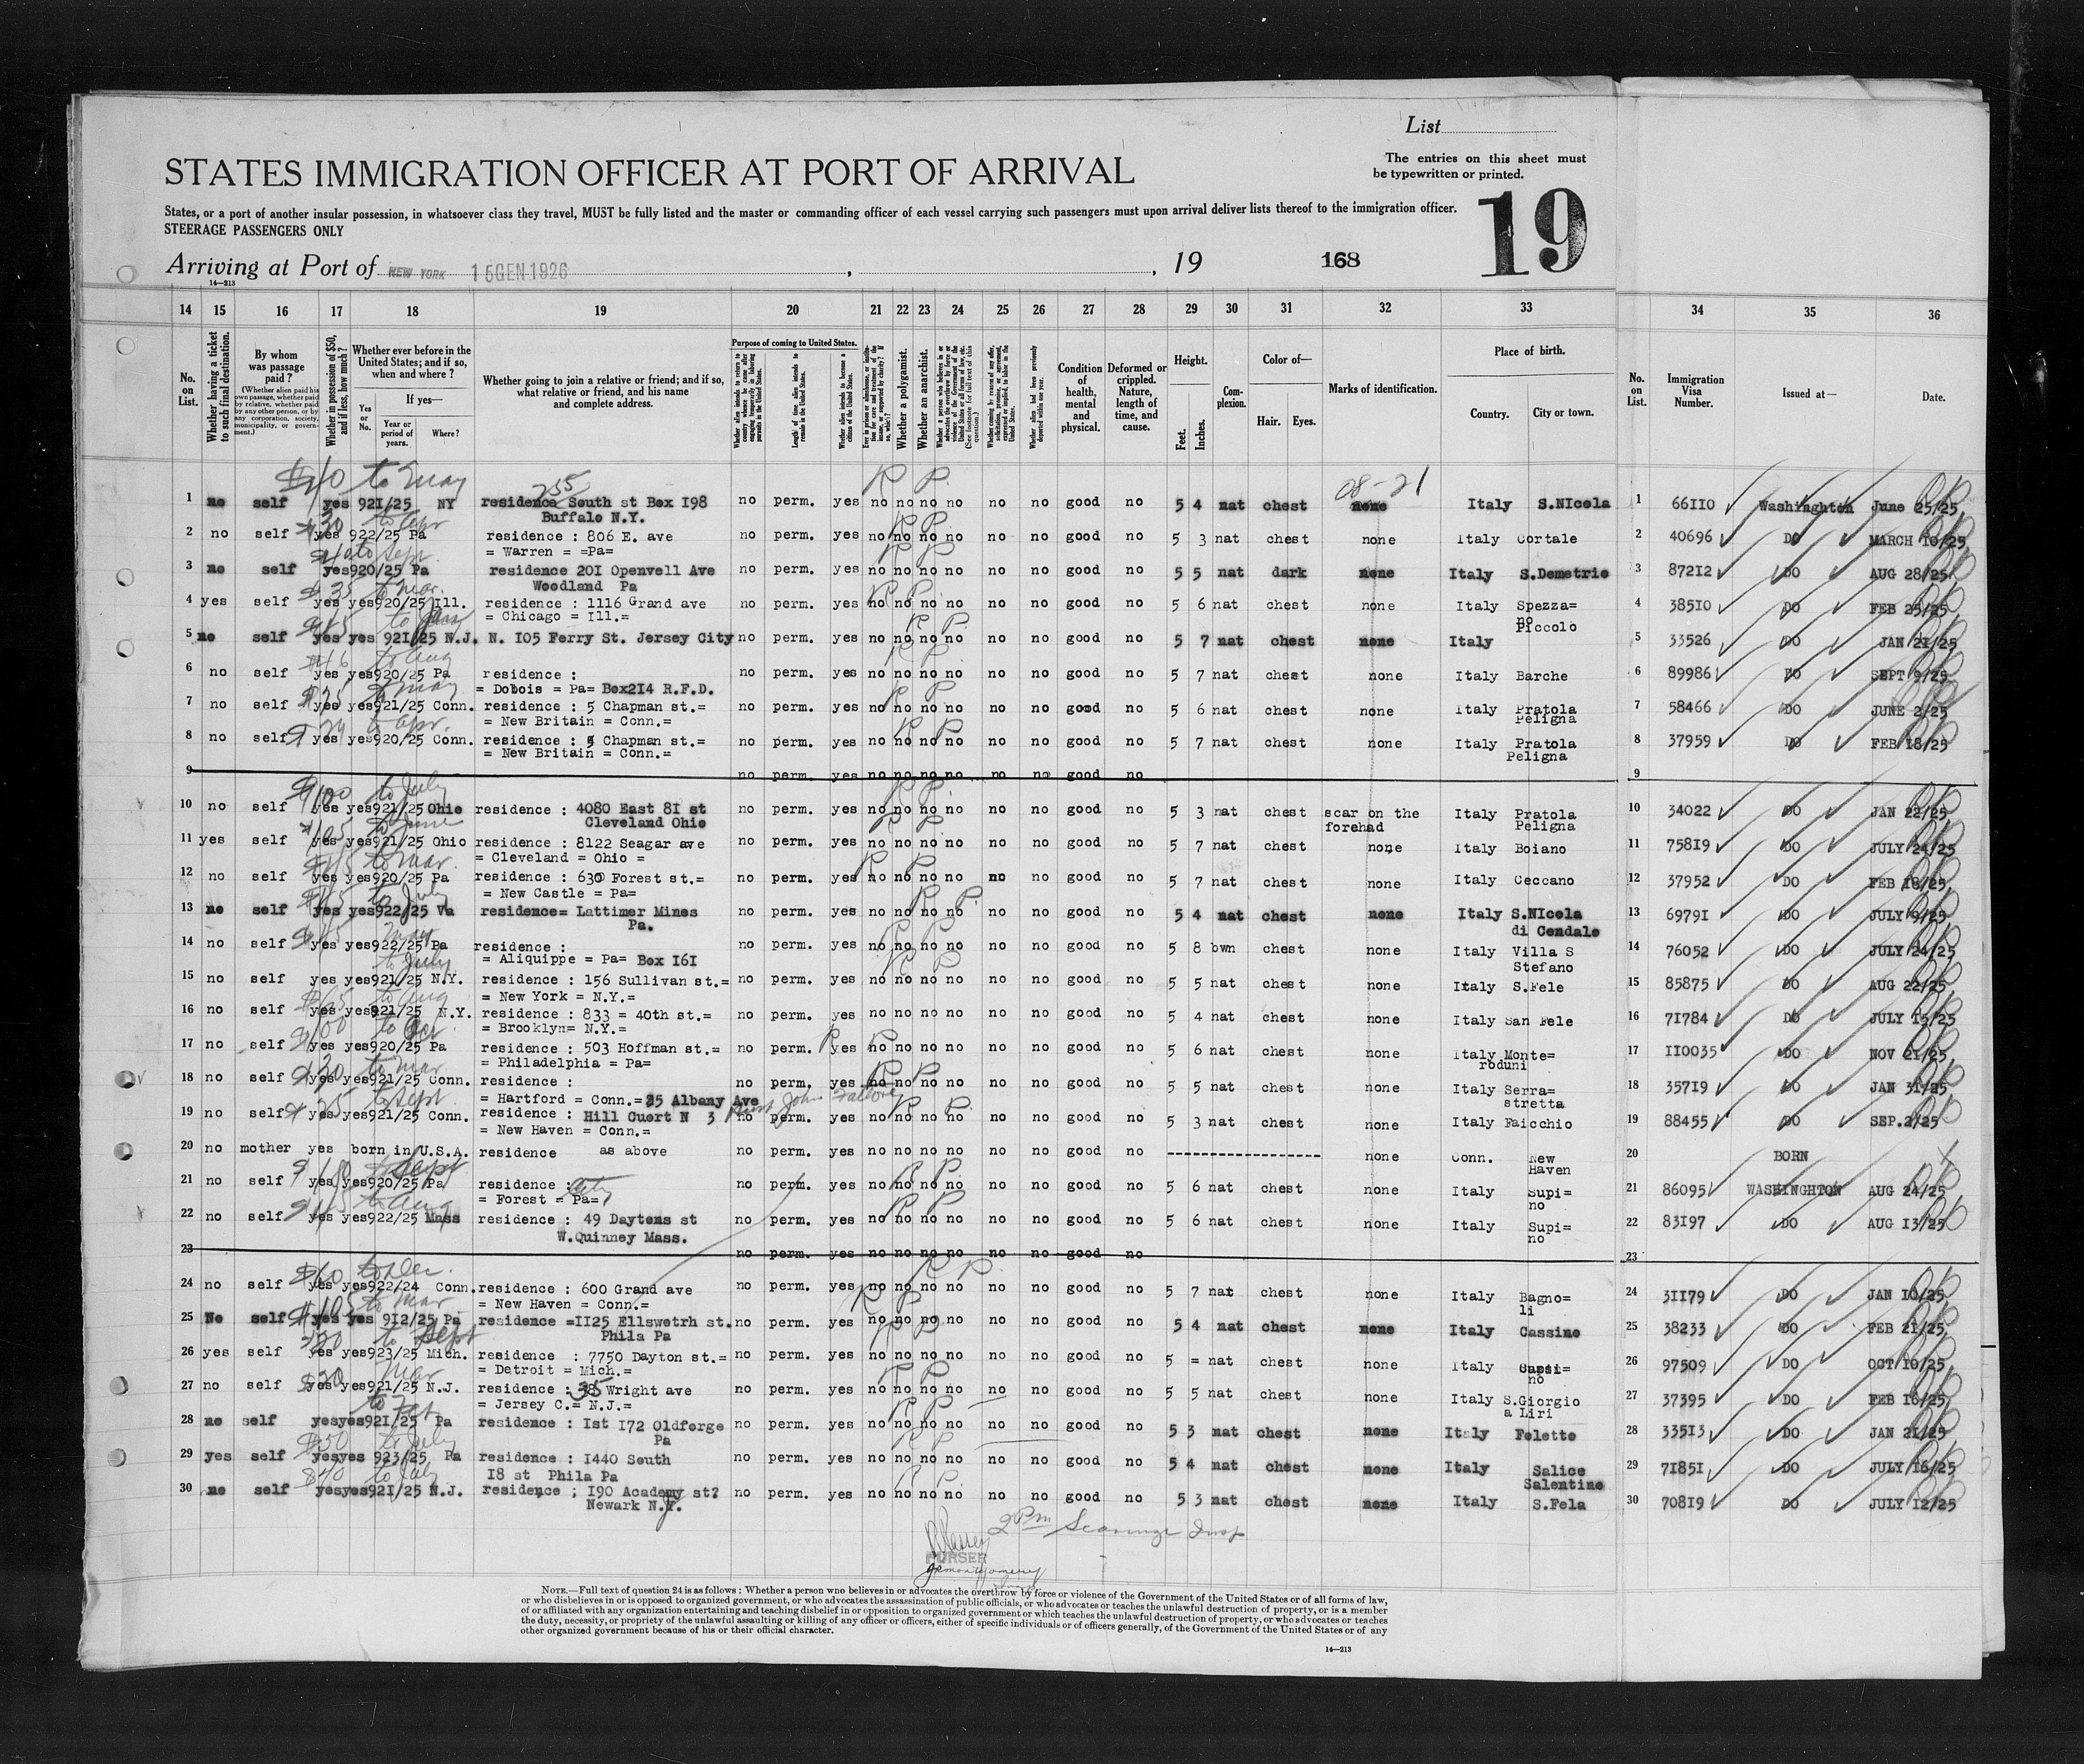 List
The entries on this sheet must
be typewritten or printed.
STATES IMMIGRATION OFFICER AT PORT OF ARRIVAL
19
States, or a port of another insular possession, in whatsoever class they travel, MUST be fully listed and the master or commanding officer of each vessel carrying such passengers must upon arrival deliver lists thereof to the immigration officer.
STEERAGE PASSENGERS ONLY
Arriving at Port of NEW YORK 15GEN1926 , , 19 168
14—213
14 15 16 17 18 19 20 21 22 23 24 25 26 27 28 29 30 31 32 33 34 35 36
No. on List.
Whether having a ticket to such final destination.
By whom was passage paid?
(Whether alien paid his own passage, whether paid by relative, whether paid by any other person, or by any corporation, society, municipality, or government.)
Whether in possession of $50, and if less, how much?
Whether ever before in the United States; and if so, when and where?
Yes or No.
If yes—
Year or period of years.
Where?
Whether going to join a relative or friend; and if so, what relative or friend, and his name and complete address.
Purpose of coming to United States.
Length of time alien intends to remain in the United States.
Whether alien intends to become a citizen of the United States.
Whether a polygamist.
Whether an anarchist.
(See footnote for full text of this question.)
Whether alien had been previously deported within one year.
Condition of health, mental and physical.
Deformed or crippled. Nature, length of time, and cause.
Height.
Feet. Inches.
Complexion.
Color of—
Hair. Eyes.
Marks of identification.
Place of birth.
Country. City or town.
No. on List.
Immigration Visa Number.
Issued at—
Date.
$40 to May 255 R P 08-21
1 no self yes 921/25 NY residence South st Box 198 no perm. yes no no no no no no good no 5 4 nat chest none Italy S.NIcola 1 66110 Washinghton June 25/25
Buffalo N.Y.
$30 to Apr R P
2 no self yes 922/25 Pa residence : 806 E. ave no perm. yes no no no no no no good no 5 3 nat chest none Italy Cortale 2 40696 DO MARCH 10/25
= Warren = =Pa=
$40 to Sept R P
3 no self yes920/25 Pa residence 201 Openvell Ave no perm. yes no no no no no no good no 5 5 nat dark none Italy S.Demetrio 3 87212 DO AUG 28/25
Woodland Pa
$35 to Mar. R P
4 yes self yes yes920/25 Ill. residence : 1116 Grand ave no perm. yes no no no no no no good no 5 6 nat chest none Italy Spezza= 4 38510 DO FEB 25/25
= Chicago = Ill.= no
Piccolo
5 no self yes yes 921/25 N.J. N. 105 Ferry St. Jersey City no perm. yes no no no no no no good no 5 7 nat chest none Italy 5 33526 DO JAN 21/25
to Aug R P
6 no self yes yes920/25 Pa residence : no perm. yes no no no no no no good no 5 7 nat chest none Italy Barche 6 89986 DO SEPT 9/25
= Dobois = Pa= Box214 R.F.D.
to May R P
7 no self yes yes921/25 Conn. residence : 5 Chapman st.= no perm. yes no no no no no no good no 5 6 nat chest none Italy Pratola 7 58466 DO JUNE 2/25
= New Britain = Conn.= Peligna
to Apr. R P
8 no self yes yes920/25 Conn. residence : 5 Chapman st.= no perm. yes no no no no no no good no 5 7 nat chest none Italy Pratola 8 37959 DO FEB 18/25
= New Britain = Conn.= Peligna
9 no perm. yes no no no no no no good no 9
$100 to July R P
10 no self yes yes921/25 Ohio residence : 4080 East 81 st no perm. yes no no no no no no good no 5 3 nat chest scar on the Italy Pratola 10 34022 DO JAN 22/25
Cleveland Ohio forehad Peligna
to June R P
11 yes self yes yes921/25 Ohio residence : 8122 Seagar ave no perm. yes no no no no no no good no 5 7 nat chest none Italy Boiano 11 75819 DO JULY 24/25
= Cleveland = Ohio =
to Mar. R P
12 no self yes yes920/25 Pa residence : 630 Forest st.= no perm. yes no no no no no no good no 5 7 nat chest none Italy Ceccano 12 37952 DO FEB 18/25
= New Castle = Pa=
to July R P
13 no self yes yes922/25 Va residence= Lattimer Mines no perm. yes no no no no no no good no 5 4 nat chest none Italy S.NIcola 13 69791 DO JULY 9/25
Pa. di Cendale
May R P
14 no self yes yes922/25 Pa residence : no perm. yes no no no no no no good no 5 8 bwn chest none Italy Villa S 14 76052 DO JULY 24/25
= Aliquippe = Pa= Box 161 Stefano
to July R P
15 no self yes yes921/25 N.Y. residence : 156 Sullivan st.= no perm. yes no no no no no no good no 5 5 nat chest none Italy S.Fele 15 85875 DO AUG 22/25
= New York = N.Y.=
to Aug
16 no self yes yes921/25 N.Y. residence : 833 = 40th st.= no perm. yes no no no no no no good no 5 4 nat chest none Italy San Fele 16 71784 DO JULY 15/25
= Brooklyn= N.Y.=
$100 to Oct. R P
17 no self yes yes920/25 Pa residence : 503 Hoffman st.= no perm. yes no no no no no no good no 5 6 nat chest none Italy Monte= 17 110035 DO NOV 21/25
= Philadelphia = Pa= roduni
$30 to Mar R P
18 no self yes yes921/25 Conn. residence : no perm. yes no no no no no no good no 5 5 nat chest none Italy Serra= 18 35719 DO JAN 31/25
= Hartford = Conn.= 25 Albany Ave stretta
to Sept John R P
19 no self yes yes921/25 Conn. residence : Hill Cuort N 3 no perm. yes no no no no no no good no 5 3 nat chest none Italy Faicchio 19 88455 DO SEP.2/25
= New Haven = Conn.=
20 no mother yes born in U.S.A. residence as above no perm. yes no no no no no no good no -------------------- none Conn. New 20 BORN
Haven
to Sept R P
21 no self yes yes920/25 Pa residence : City no perm. yes no no no no no no good no 5 6 nat chest none Italy Supi= 21 86095 WASHINGHTON AUG 24/25
= Forest = Pa= no
to Aug R P
22 no self yes yes922/25 Mass residence : 49 Daytons st no perm. yes no no no no no no good no 5 6 nat chest none Italy Supi= 22 83197 DO AUG 13/25
W.Quinney Mass. no
23 no perm. yes no no no no no no good no 23
$60 to Dec. R P
24 no self yes yes922/24 Conn. residence : 600 Grand ave no perm. yes no no no no no no good no 5 7 nat chest none Italy Bagno= 24 31179 DO JAN 10/25
= New Haven = Conn.= li
$105 to Mar R P
25 No self yes yes 912/25 Pa residence =1125 Ellswetrh st. no perm. yes no no no no no no good no 5 4 nat chest none Italy Cassino 25 38233 DO FEB 21/25
Phila Pa
to Sept R P
26 yes self yes yes923/25 Mich. residence : 7750 Dayton st.= no perm. yes no no no no no no good no 5 = nat chest none Italy 26 97509 DO OCT 10/25
= Detroit = Mich.= no
$20 Mar R P
27 no self yes yes921/25 N.J. residence : 35 Wright ave no perm. yes no no no no no no good no 5 5 nat chest none Italy S.Giorgio 27 37395 DO FEB 16/25
= Jersey C.= N.J.= a Liri
to Feb R P
28 no self yesyes921/25 Pa residence : 1st 172 Oldforge no perm. yes no no no no no no good no 5 3 nat chest none Italy Felette 28 33513 DO JAN 21/25
Pa
$50 to July R P
29 yes self yesyes 923/25 Pa residence : 1440 South no perm. yes no no no no no no good no 5 4 nat chest none Italy Salice 29 71851 DO JULY 16/25
18 st Phila Pa Salentino
to July R P
30 no self yesyes921/25 N.J. residence ; 190 Academy st? no perm. yes no no no no no no good no 5 3 nat chest none Italy S.Fela 30 70819 DO JULY 12/25
Newark N.Y.
2 Pm Insp
PURSER
NOTE.—Full text of question 24 is as follows: Whether a person who believes in or advocates the overthrow by force or violence of the Government of the United States or of all forms of law,
or who disbelieves in or is opposed to organized government, or who advocates the assassination of public officials, or who advocates or teaches the unlawful destruction of property, or is a member
of or affiliated with any organization entertaining and teaching disbelief in or opposition to organized government or which teaches the unlawful destruction of property, or who advocates or teaches
the duty, necessity, or propriety of the unlawful assaulting or killing of any officer or officers, either of specific individuals or of officers generally, of the Government of the United States or of any
other organized government because of his or their official character.
14—213